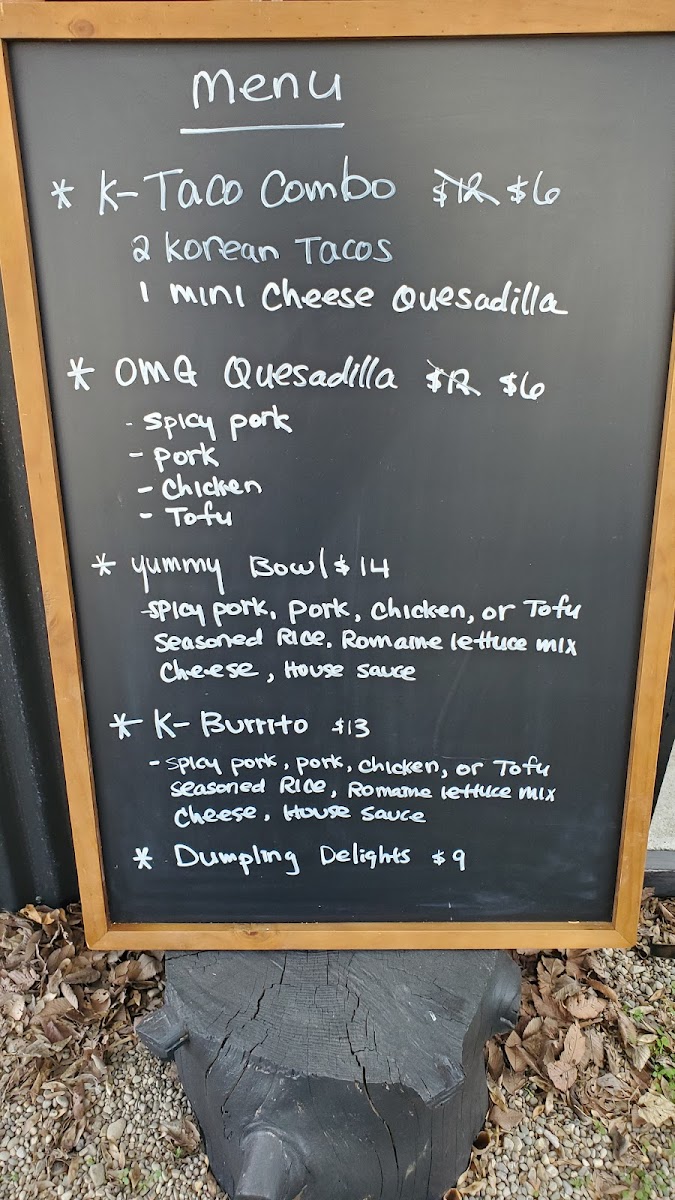 Menu
* K-Taco Combo $12 $6
2 Korean Tacos
1 mini Cheese Quesadilla
* OMG Quesadilla $12 $6
- Spicy pork
- Pork
- Chicken
- Tofu
* Yummy Bowl $14
-Spicy pork, pork, chicken, or Tofu
Seasoned Rice, Romaine lettuce mix
Cheese, House sauce
* K-Burrito $13
- Spicy pork, pork, chicken, or Tofu
seasoned Rice, Romaine lettuce mix
Cheese, House sauce
* Dumpling Delights $9